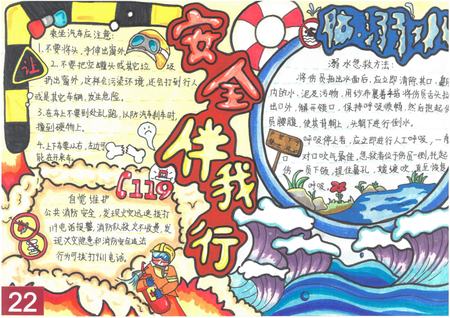 安全伴我行
防溺水
乘坐汽车应注意:
1.不要将头、手伸出窗外
2.不要把空罐头或其它垃圾
扔出窗外,这样会污染环境,还会打到行人
或是其它车辆,发生危险。
3.在车上不要到处乱跑,以防汽车刹车时,
撞到硬物上。
4.上下车要以右,左边
能在开车
让
119
自觉维护
公共消防安全,发现火灾迅速拨打
119电话报警,消防队救火不收费,发
现火灾隐患和消防安全违法
行为可拨打119电话。
溺水急救方法:
将伤员抬出水面后,应立即清除其口、鼻
内的水、泥及污物,用纱布裹着手指将伤员舌头拉
出口外,解开领口,保持呼吸顺畅,然后抱起伤
员腰腹,使其背朝上、头朝下进行倒水。
呼吸停止者,应立即进行人工呼吸,一般
对口吹气最佳,急救者位于伤员一侧,托起
员下颌,捏住鼻孔,
呼吸。
22